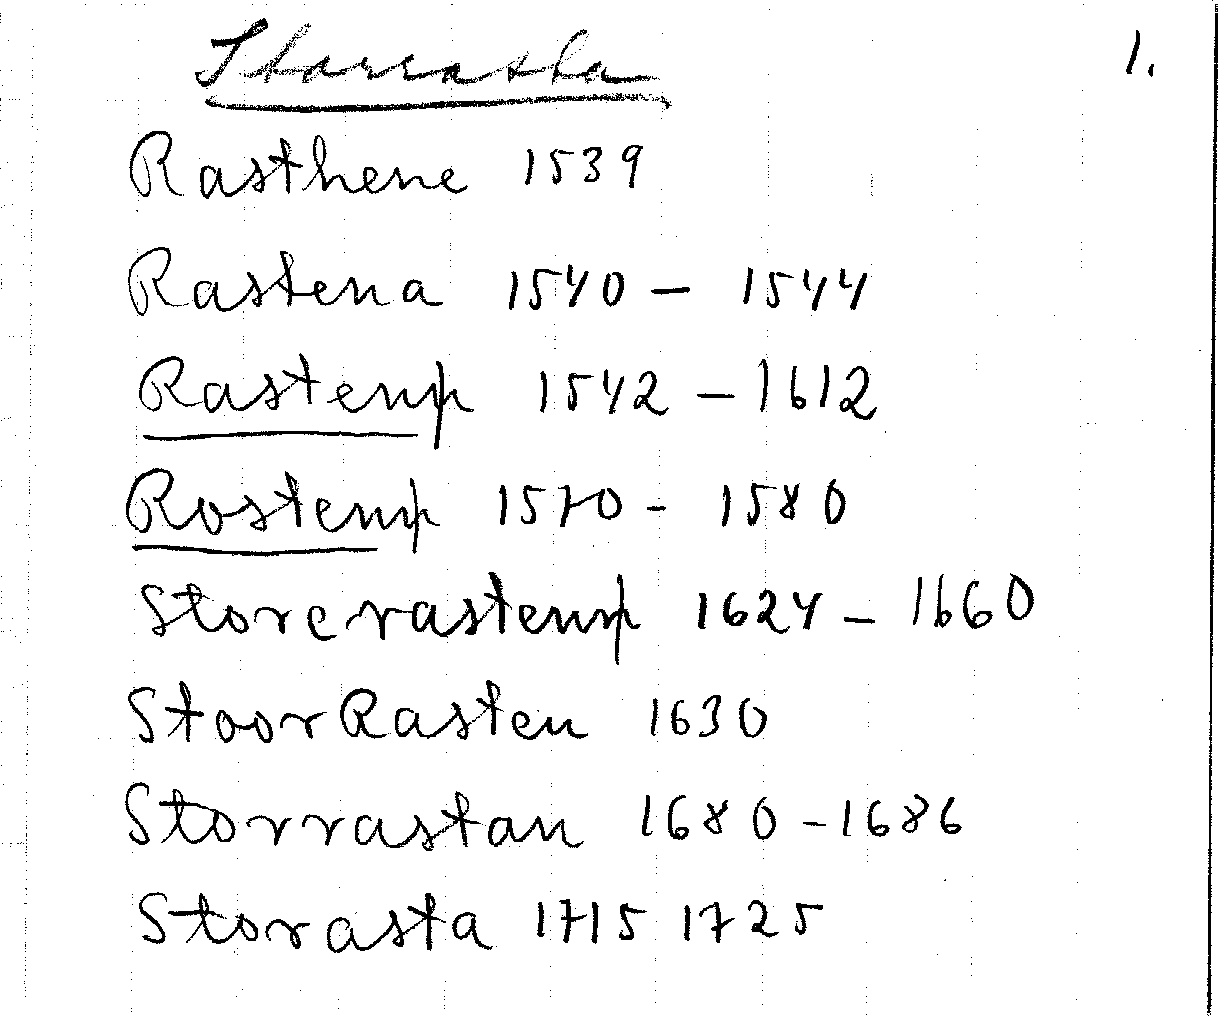 Storrasta 1.
Rasthene 1539
Rastena 1540 – 1544
Rastenp 1542 – 1612
Rostenp 1570 - 1580
Storerastenp 1624 – 1660
StoorRasten 1630
Storrastan 1680 - 1686
Storasta 1715 1725